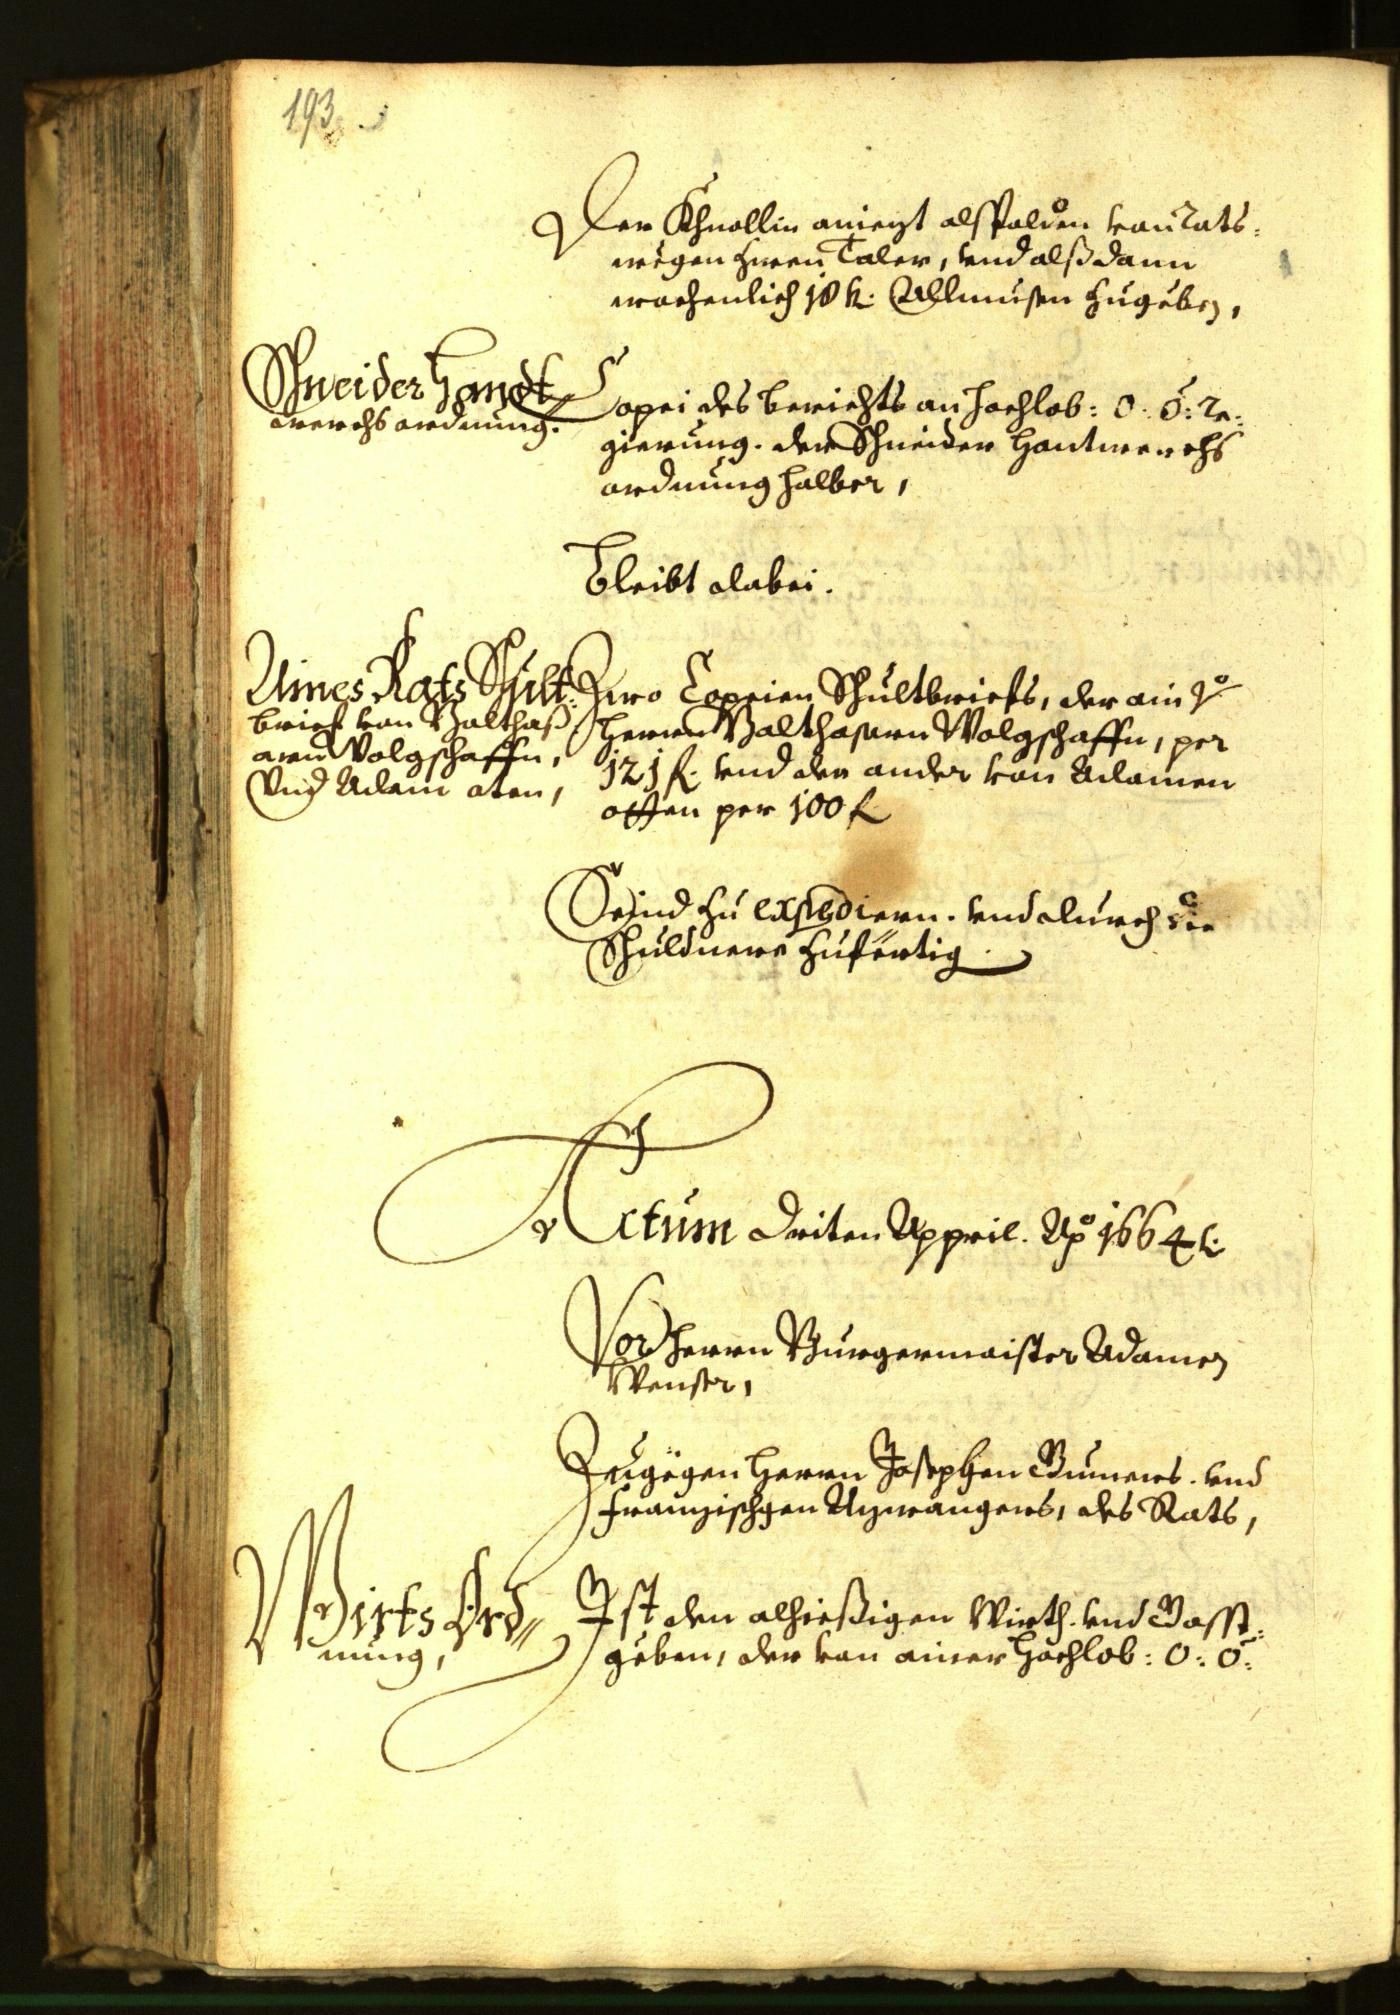 193
Der Khnollin aniezt alspalden von Rats-
wegen zween Taler, vnd alßdann
wochenlich 18 k. Allmusen zugeben,
Schneider Handt-
werchs ordnung.
Copei des berichts an hochlob: O: Ö: Re-
gierung. der Schneider Handtwerchs
ordnung halber,
Bleibt dabei.
Aines Rats Schult-
brief von Balthaß-
arn Wolgschaffn,
Vnd Adam oten,
Zwo Copeien Schultbriefs, der ain
herrn Balthasarn Wolgschaffn, per
121 f. vnd der ander von Adamen
otten per 100 f
Seind zu expediern. vnd durch die
Schuldnere zufertig
Actum driten Appril. Ao 1664
Vor herrn Burgermaister Adamen
Wenser,
Zugegen herrn Josephen Gumers. vnd
Franzischgen Azwangers, des Rats,
Wirts Ord-
nung,
Ist den alhießigen Wirth. vnd Gasst-
geben, der von ainer hochlob: O: Ö: